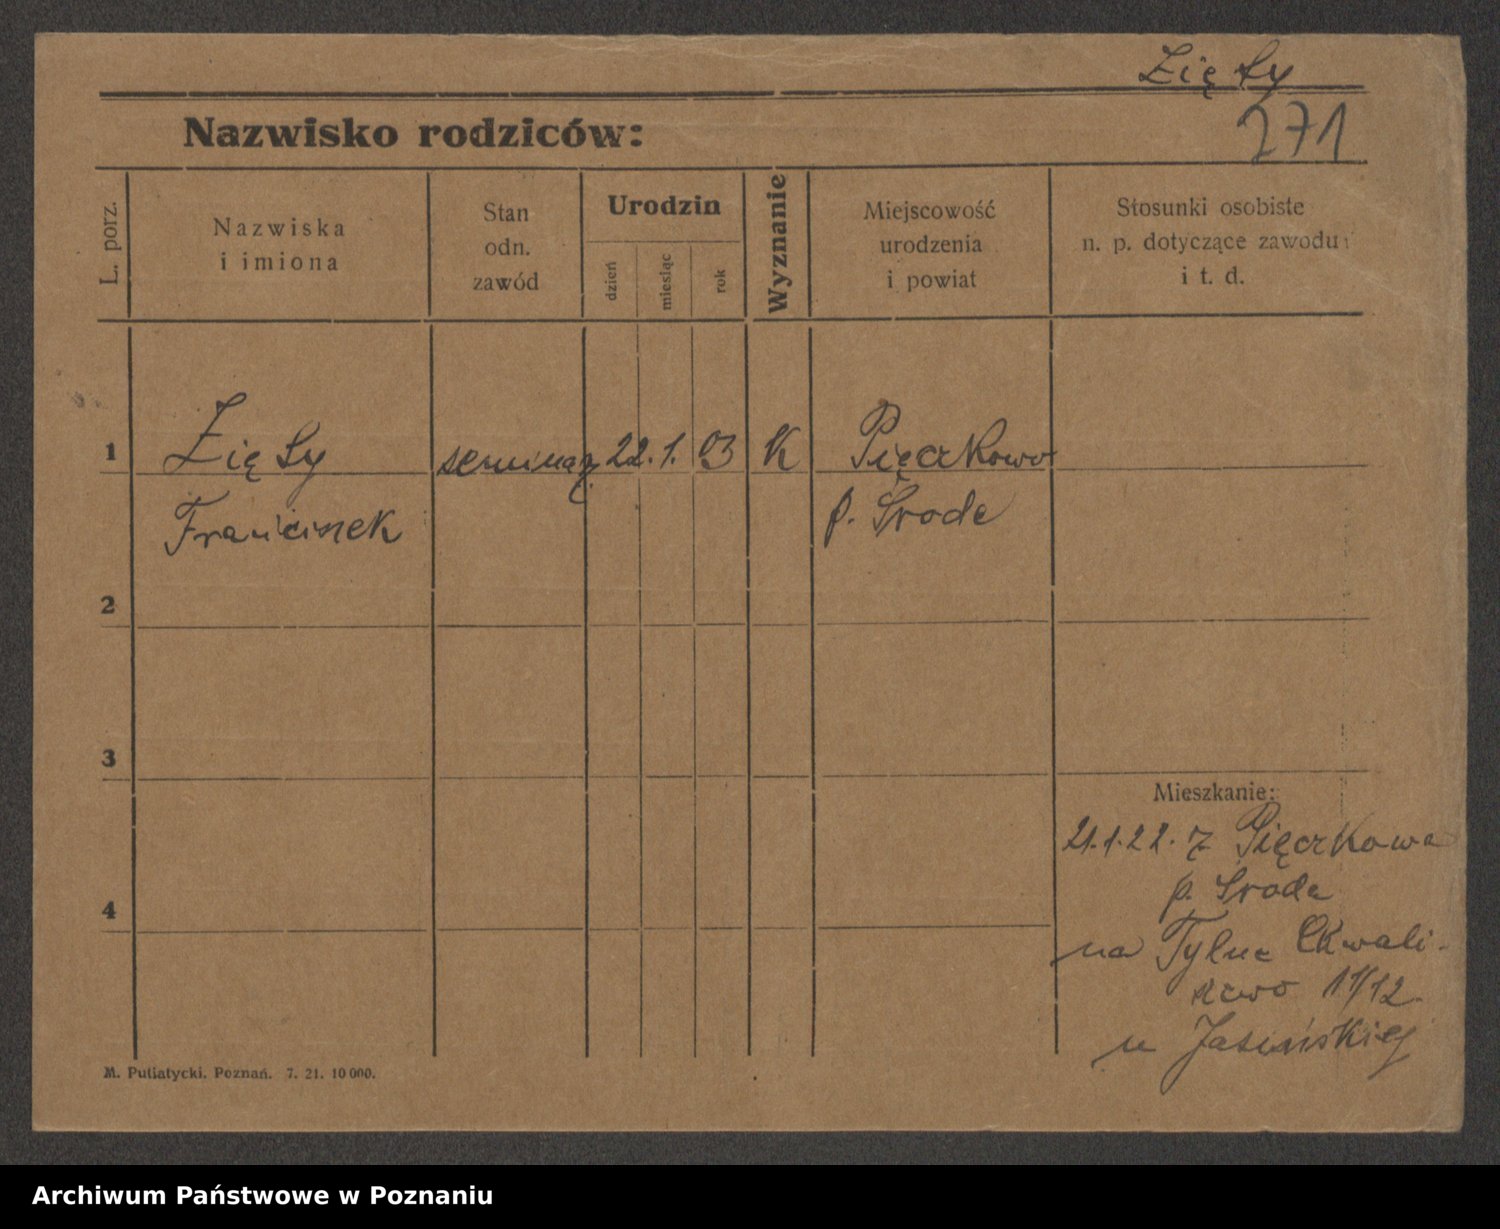 Zięty
271
Nazwisko rodziców:
L. porz.
Nazwiska
i imiona
Stan
odn.
zawód
Urodzin
dzień
miesiąc
rok
Wyznanie
Miejscowość
urodzenia
i powiat
Stosunki osobiste
n. p. dotyczące zawodu
i t. d.
1 Zięty 22. 1. 03 K Pięczkowo
Franciszek p. Środa
2
3
Mieszkanie:
21.1.22. z Pięczkowa
p. Środa
4
na Tylne Chwali-
szewo 11/12
u Jasińskiej
M. Putiatycki, Poznań. 7. 21. 10 000.
Archiwum Państwowe w Poznaniu